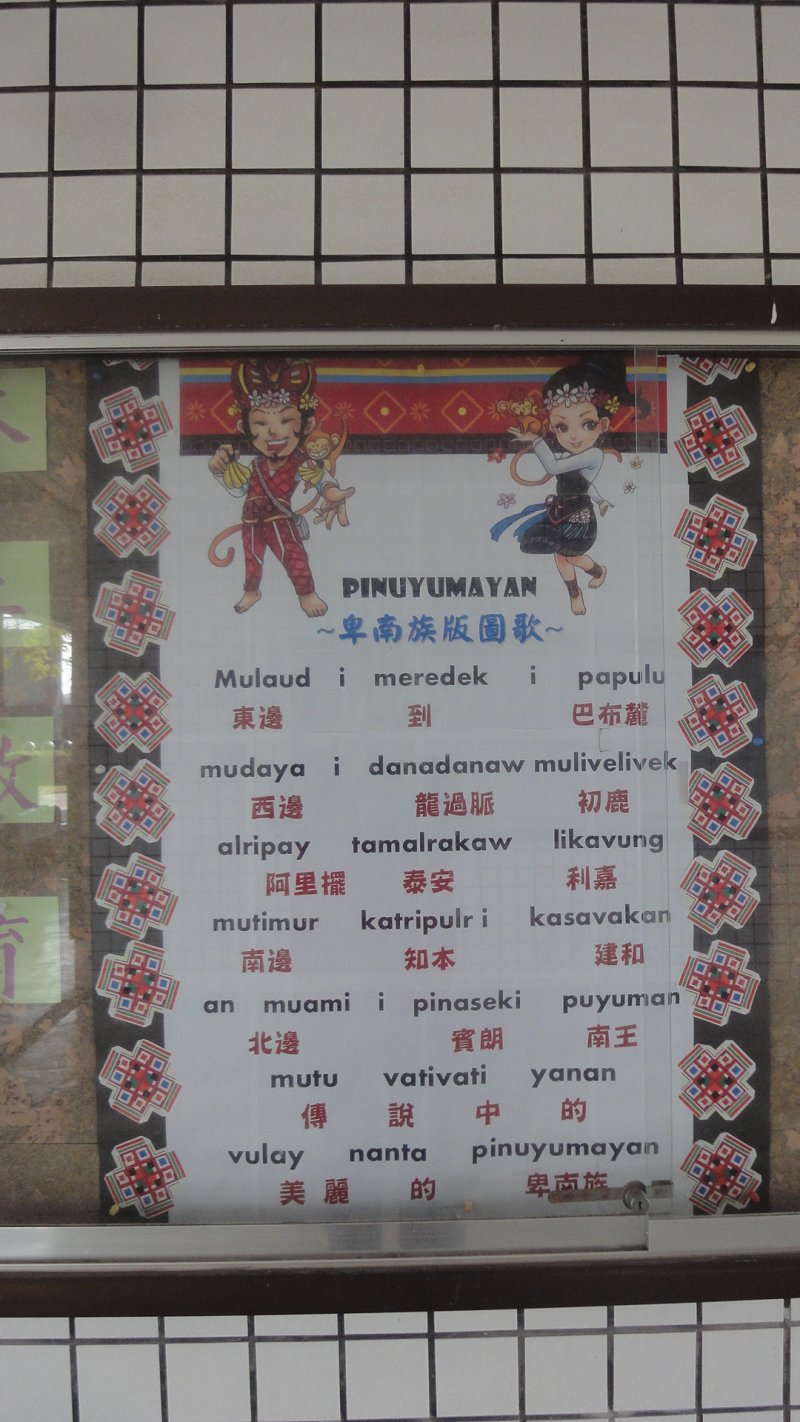 PINUYUMAYAN
~卑南族版圖歌~
Mulaud i meredek i papulu
東邊 到 巴布麓
mudaya i danadanaw mulivelivek
西邊 龍過脈 初鹿
alripay tamalrakaw likavung
阿里擺 泰安 利嘉
mutimur katripulr i kasavakan
南邊 知本 建和
an muami i pinaseki puyuman
北邊 賓朗 南王
mutu vativati yanan
傳 說 中 的
vulay nanta pinuyumayan
美 麗 的 卑南族